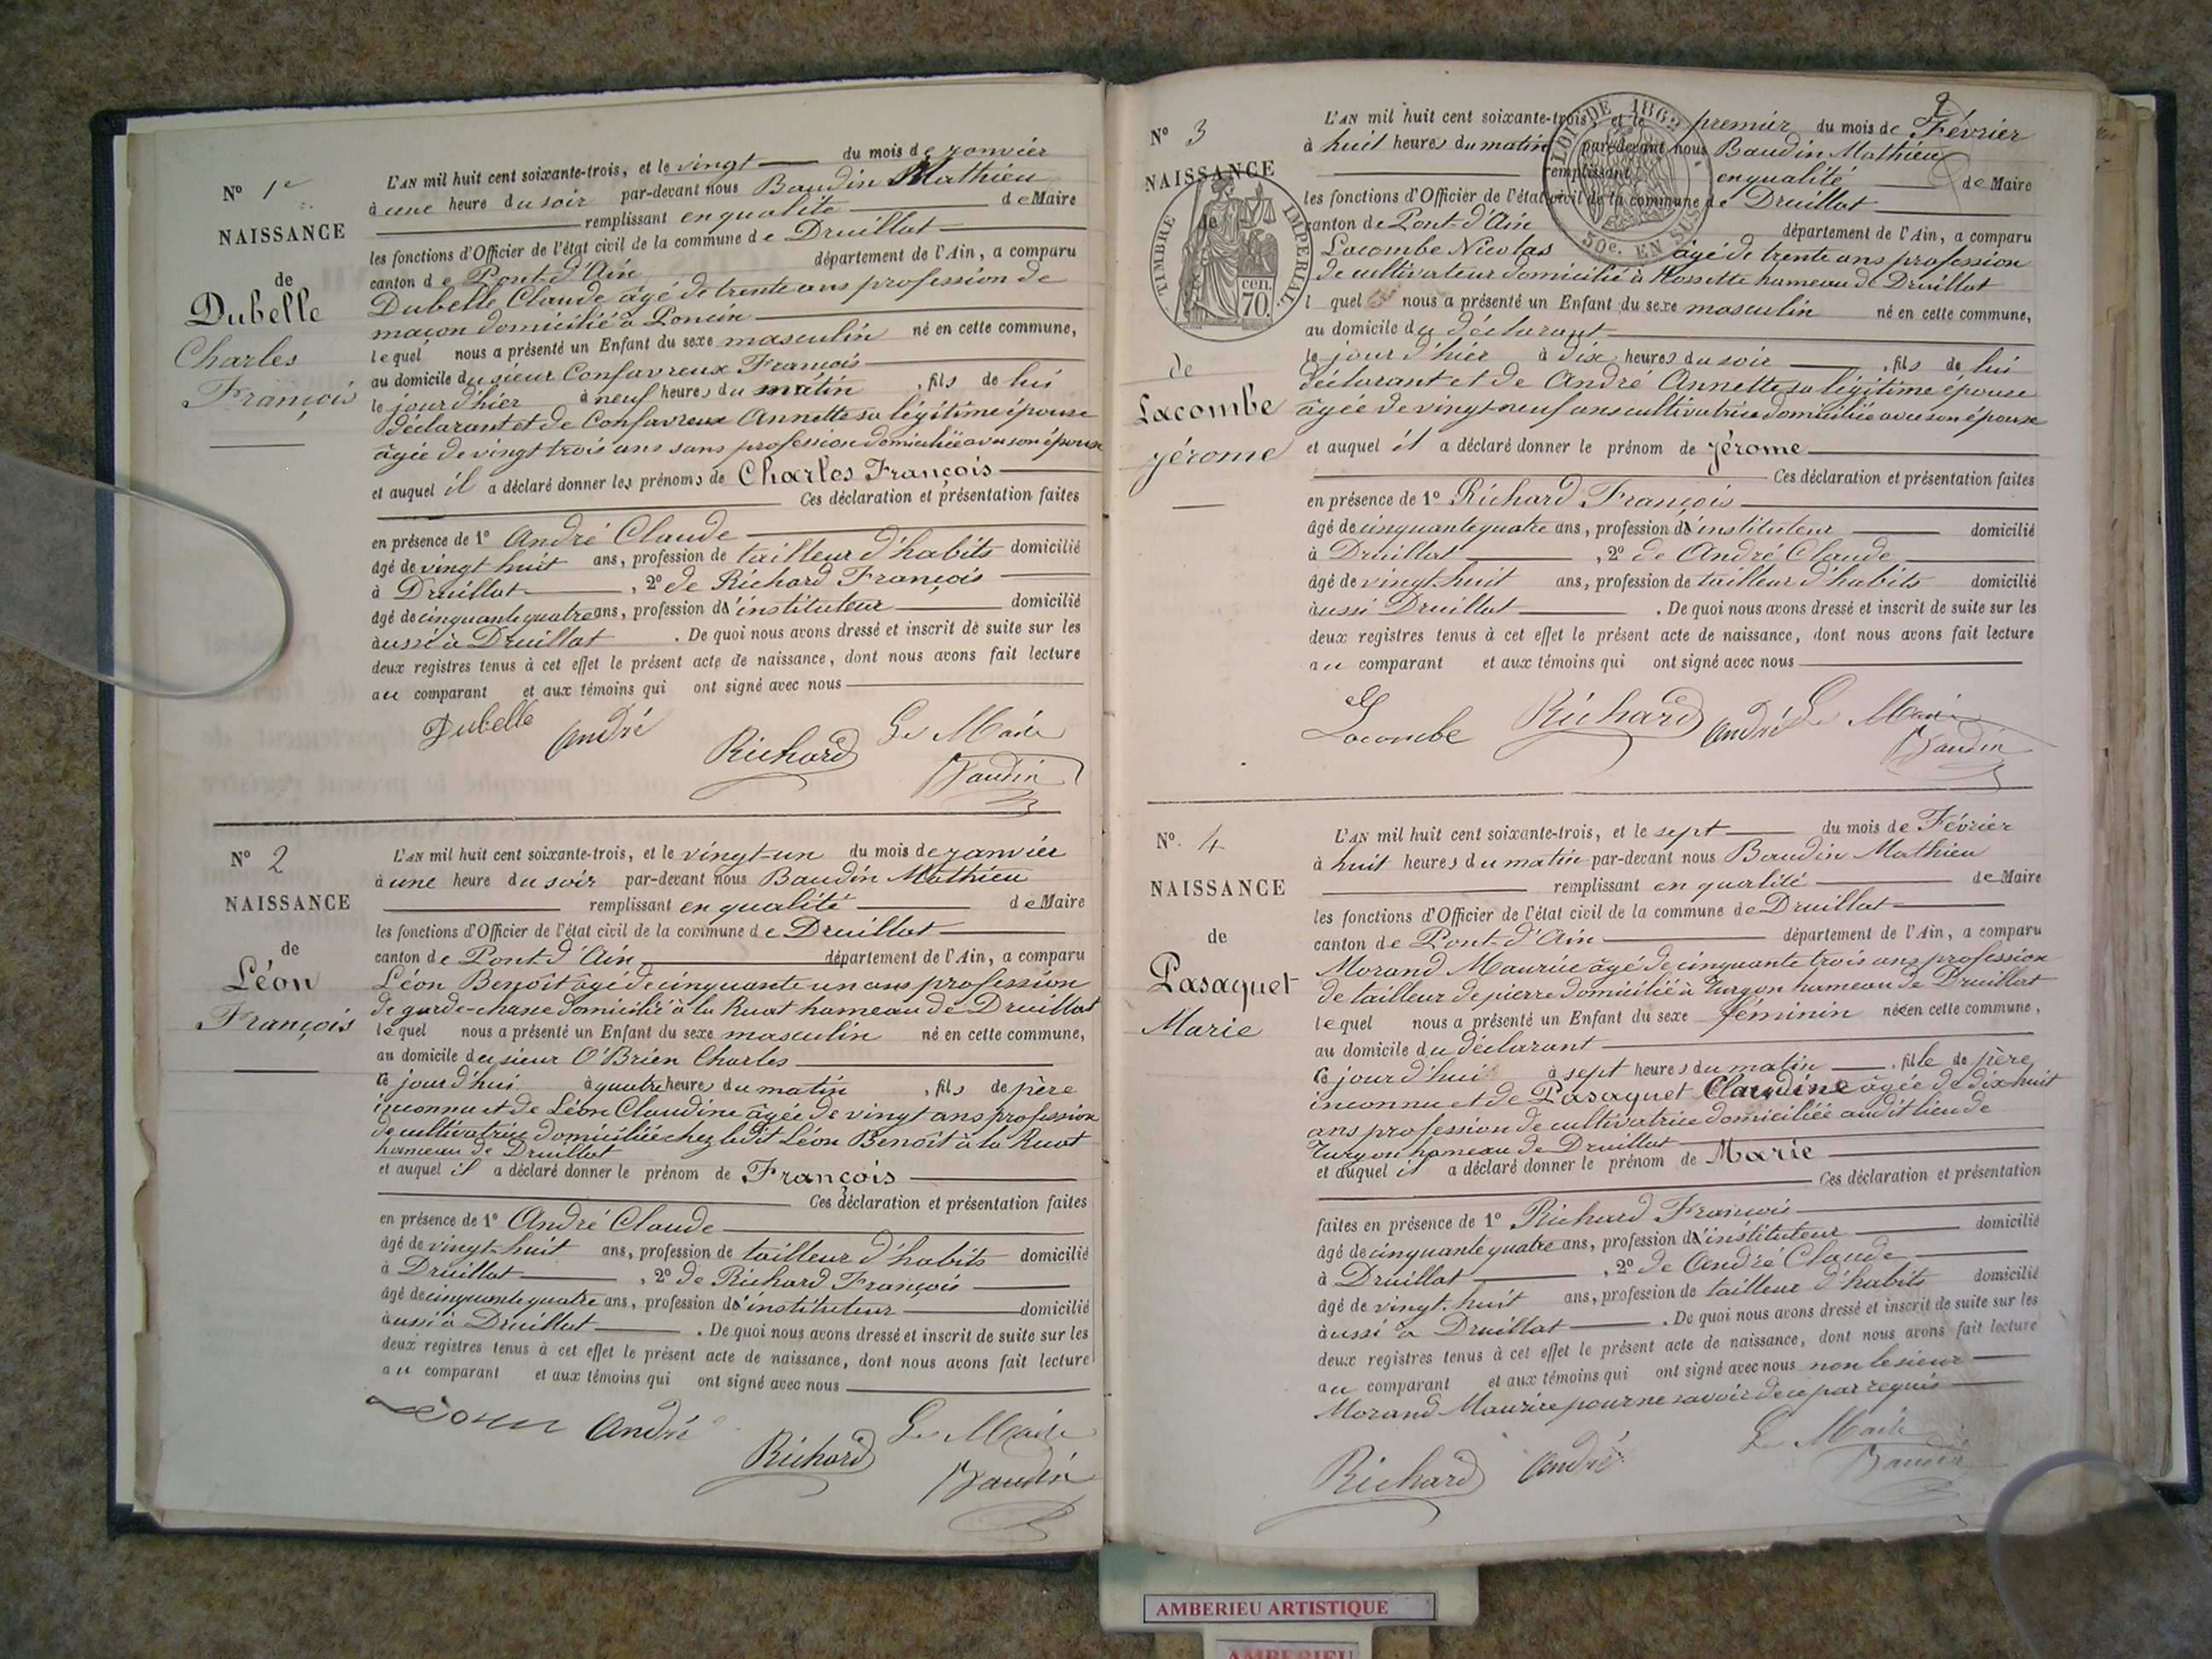 N° 1er
NAISSANCE
de
Dubelle
Charles
François
L'AN mil huit cent soixante-trois, et le vingt du mois de janvier
à une heure du soir par-devant nous Baudin Mathieu
remplissant en qualité de Maire
les fonctions d'Officier de l'état civil de la commune de Druillat
canton de Pont-d'Ain département de l'Ain, a comparu
Dubelle Claude âgé de trente ans profession de
maçon domicilié à Poncin
lequel nous a présenté un Enfant du sexe masculin né en cette commune,
au domicile du sieur Confavreux François
le jour d'hier à neuf heures du matin, fils de lui
déclarant et de Confavreux Annette sa légitime épouse
âgée de vingt trois ans sans profession domiciliée avec son épouse
et auquel il a déclaré donner les prénoms de Charles François
Ces déclaration et présentation faites
en présence de 1° André Claude
âgé de vingt huit ans, profession de tailleur d'habits domicilié
à Druillat, 2° de Richard François
âgé de cinquante quatre ans, profession d'instituteur domicilié
aussi à Druillat. De quoi nous avons dressé et inscrit de suite sur les
deux registres tenus à cet effet le présent acte de naissance, dont nous avons fait lecture
au comparant et aux témoins qui ont signé avec nous
Dubelle André Richard Le Maire
Baudin
N° 2
NAISSANCE
de
Léon
François
L'AN mil huit cent soixante-trois, et le vingt-un du mois de janvier
à une heure du soir par-devant nous Baudin Mathieu
remplissant en qualité de Maire
les fonctions d'Officier de l'état civil de la commune de Druillat
canton de Pont d'Ain département de l'Ain, a comparu
Léon Benoît âgé de cinquante un ans profession
de garde-chasse domicilié à la Ruat hameau de Druillat
lequel nous a présenté un Enfant du sexe masculin né en cette commune,
au domicile du sieur O'Brien Charles
ce jour d'hui à quatre heures du matin, fils de père
inconnu et de Léon Claudine âgée de vingt ans profession
de cultivatrice domiciliée chez ledit Léon Benoît à la Ruat
hameau de Druillat
et auquel il a déclaré donner le prénom de François
Ces déclaration et présentation faites
en présence de 1° André Claude
âgé de vingt-huit ans, profession de tailleur d'habits domicilié
à Druillat, 2° de Richard François
âgé de cinquante quatre ans, profession d'instituteur domicilié
aussi à Druillat. De quoi nous avons dressé et inscrit de suite sur les
deux registres tenus à cet effet le présent acte de naissance, dont nous avons fait lecture
au comparant et aux témoins qui ont signé avec nous
Léon André Richard Le Maire
Baudin
2
N° 3
NAISSANCE
de
TIMBRE IMPERIAL
cen.
70.
LOI DE 1862
50c. EN SUS
de
Lacombe
Jérome
L'AN mil huit cent soixante-trois, et le premier du mois de Février
à huit heures du matin par-devant nous Baudin Mathieu
remplissant en qualité de Maire
les fonctions d'Officier de l'état civil de la commune de Druillat
canton de Pont-d'Ain département de l'Ain, a comparu
Lacombe Nicolas âgé de trente ans profession
de cultivateur domicilié à Rossette hameau de Druillat
lequel nous a présenté un Enfant du sexe masculin né en cette commune,
au domicile du déclarant
le jour d'hier à dix heures du soir, fils de lui
déclarant et de André Annette sa légitime épouse
âgée de vingt-neuf ans cultivatrice domiciliée avec son épouse
et auquel il a déclaré donner le prénom de Jérome
Ces déclaration et présentation faites
en présence de 1° Richard François
âgé de cinquante quatre ans, profession d'instituteur domicilié
à Druillat, 2° de André Claude
âgé de vingt-huit ans, profession de tailleur d'habits domicilié
aussi Druillat. De quoi nous avons dressé et inscrit de suite sur les
deux registres tenus à cet effet le présent acte de naissance, dont nous avons fait lecture
au comparant et aux témoins qui ont signé avec nous
Lacombe Richard André Le Maire
Baudin
N°. 4
NAISSANCE
de
Pasaquet
Marie
L'AN mil huit cent soixante-trois, et le sept du mois de Février
à huit heures du matin par-devant nous Baudin Mathieu
remplissant en qualité de Maire
les fonctions d'Officier de l'état civil de la commune de Druillat
canton de Pont-d'Ain département de l'Ain, a comparu
Morand Maurice âgé de cinquante trois ans profession
de tailleur de pierre domicilié à Turgon hameau de Druillat
lequel nous a présenté un Enfant du sexe féminin née en cette commune,
au domicile du déclarant
ce jour d'hui à sept heures du matin, fille de père
inconnu et de Pasaquet Claudine âgée de dix huit
ans profession de cultivatrice domiciliée audit lieu de
Turgon hameau de Druillat
et auquel il a déclaré donner le prénom de Marie
Ces déclaration et présentation
faites en présence de 1° Richard François
âgé de cinquante quatre ans, profession d'instituteur domicilié
à Druillat, 2° de André Claude
âgé de vingt-huit ans, profession de tailleur d'habits domicilié
aussi à Druillat. De quoi nous avons dressé et inscrit de suite sur les
deux registres tenus à cet effet le présent acte de naissance, dont nous avons fait lecture
au comparant et aux témoins qui ont signé avec nous non le sieur
Morand Maurice pour ne savoir de ce par requis
Richard André Le Maire
Baudin
AMBERIEU ARTISTIQUE
AMBERIEU